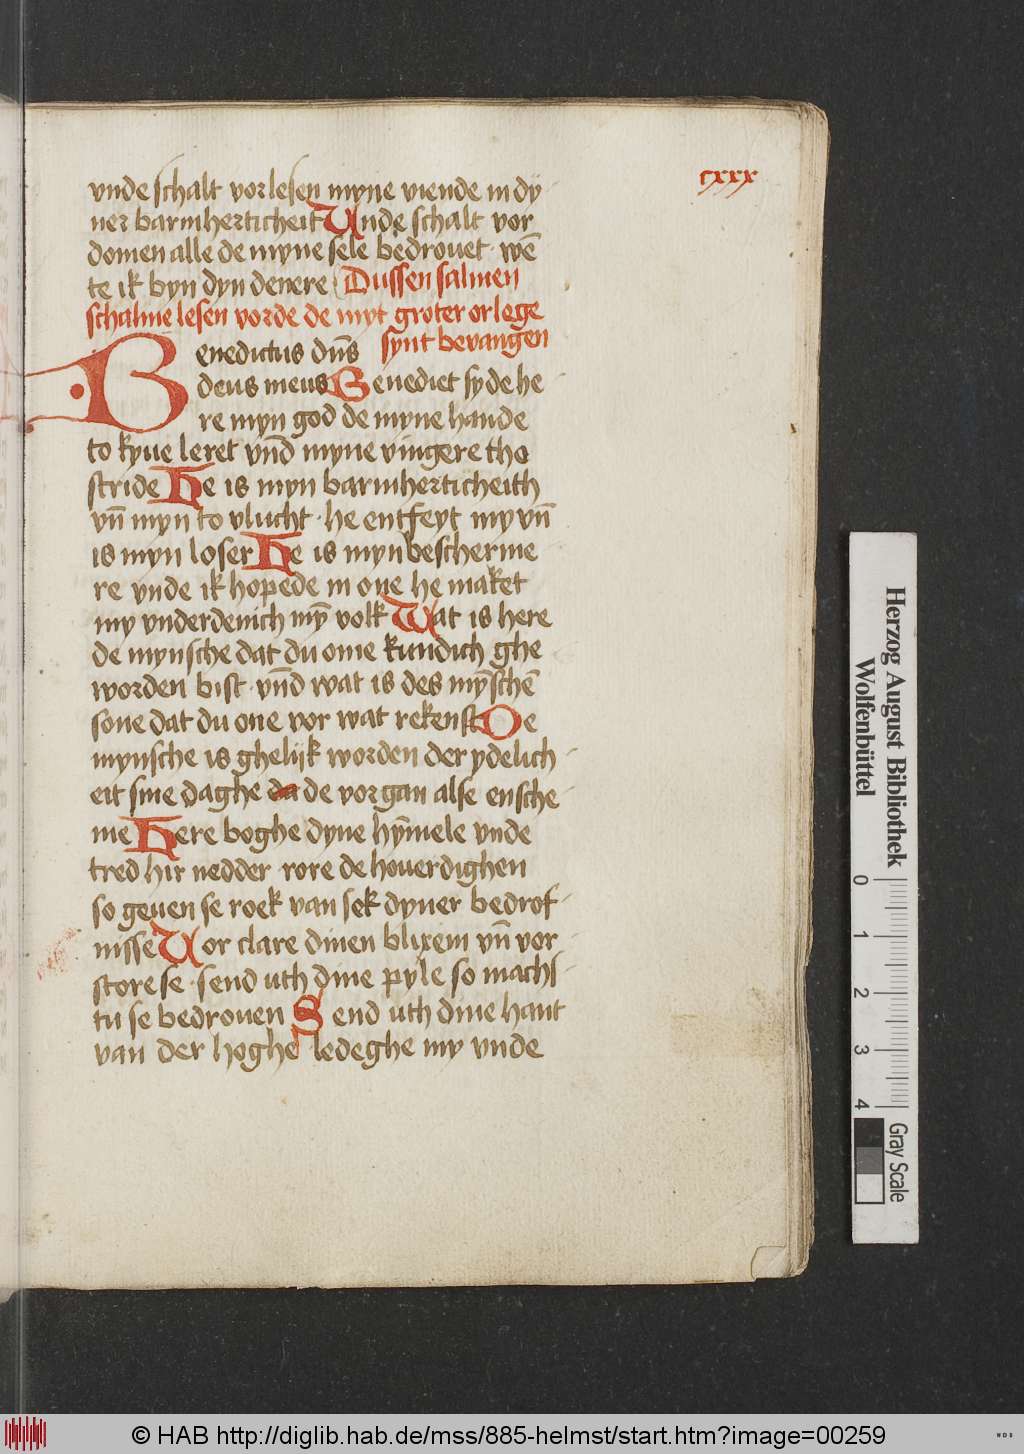 cxxx
vnde schalt vorlesen myne viende in dy
ner barmherticheit Unde schalt vor
domen alle de myne sele bedrouet · wē
te ik byn dyn denere Dussen salmen
schalme lesen vorde de myt groter orlege
synt bevangen
Benedictus dn̄s
deus meus Benediet sy de he
re myn god de myne hande
to kyue leret vn̄d myne vingere tho
stride He is myn barmherticheith
vn̄ myn to vlucht · he entfeyt my vn̄
is myn loser He is myn bescherme
re vnde ik hopede in one he maket
my vnderdenich mȳ volk Wat is here
de mynsche dat du ome kundich ghe
worden bist · vn̄d wat is des mȳschē
sone dat du one vor wat rekenst De
mynsche is ghelijk worden der ydelich
eit sine daghe da de vorgan alse en sche
me Here boghe dyne hȳmele vnde
tred hir nedder · rore de houerdighen
so geuen se roek van sek dyner bedrof
nisse Vor clare dinen blixem vn̄ vor
store se · send uth dine pyle so machs
tu se bedrouen Send uth dine hant
van der hoghe ledeghe my vnde
Herzog August Bibliothek
Wolfenbüttel
0 1 2 3 4
Gray Scale
© HAB http://diglib.hab.de/mss/885-helmst/start.htm?image=00259